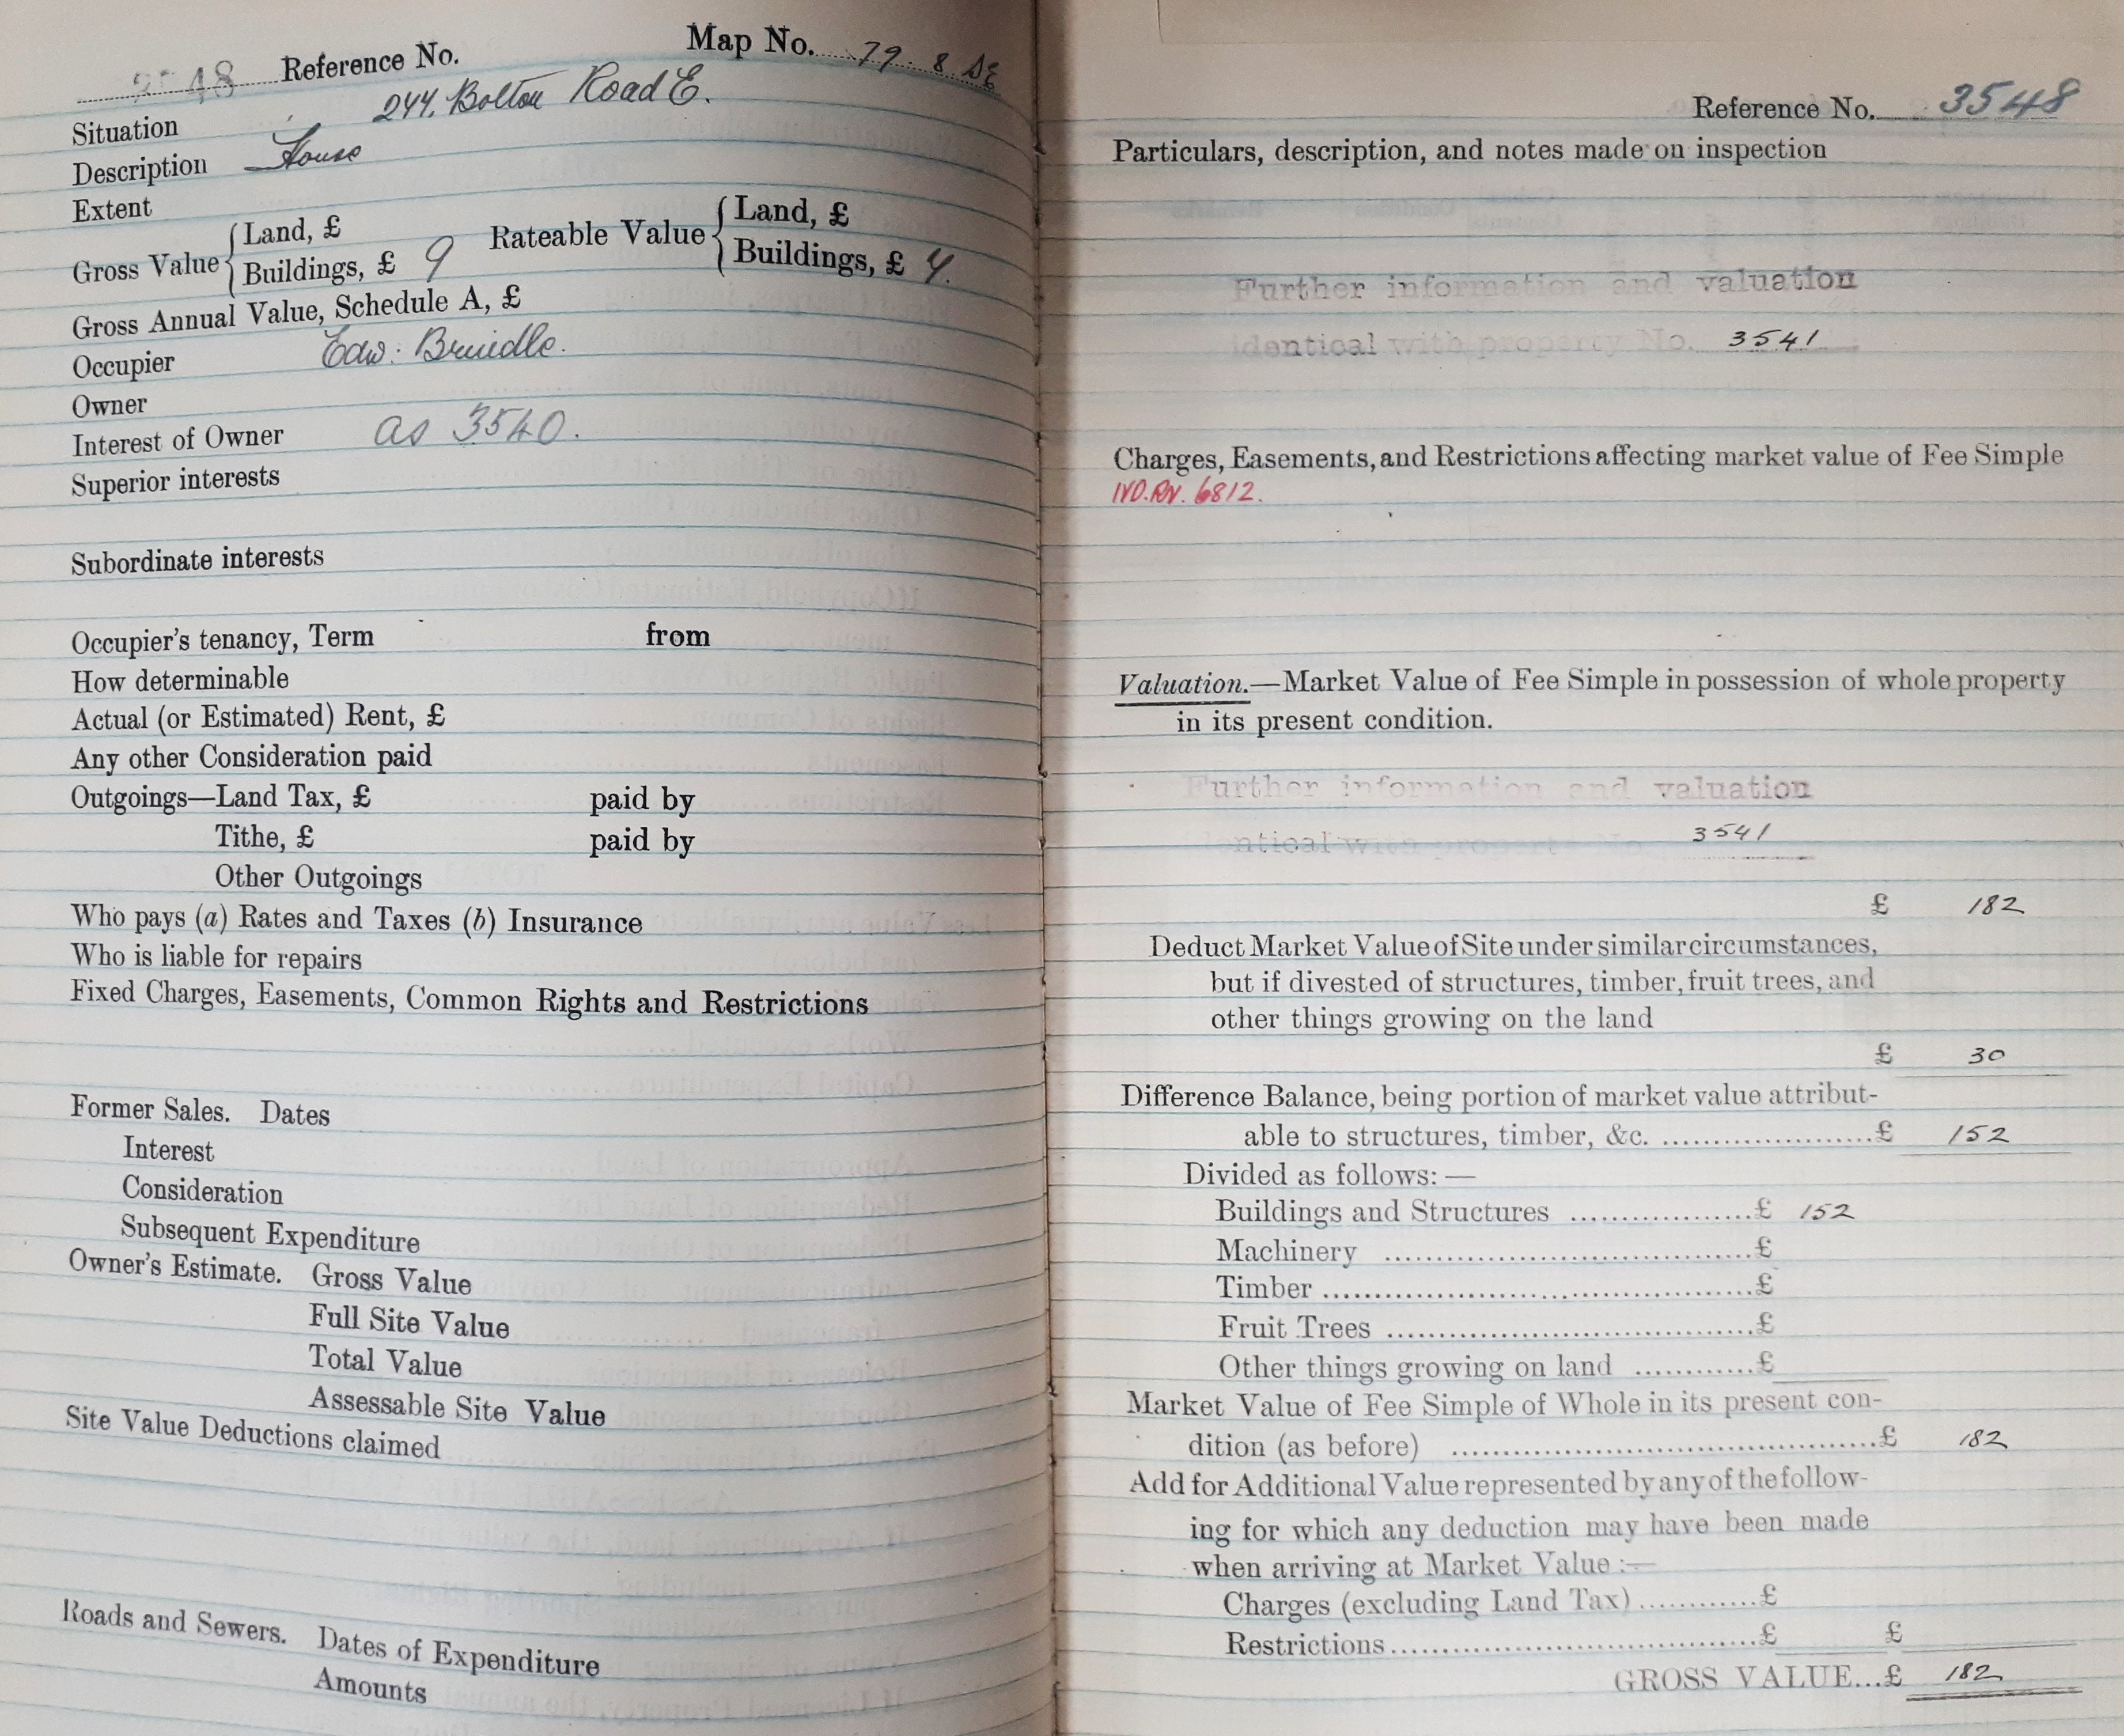 3548 Reference No. Map No. 79. 8 SE
Situation 244, Bolton Road E.
Description House
Extent
Gross Value { Land, £
Buildings, £ 9
Rateable Value { Land, £
Buildings, £ 7.
Gross Annual Value, Schedule A, £
Occupier Edw: Brindle.
Owner
Interest of Owner as 3540.
Superior interests
Subordinate interests
Occupier's tenancy, Term from
How determinable
Actual (or Estimated) Rent, £
Any other Consideration paid
Outgoings—Land Tax, £ paid by
Tithe, £ paid by
Other Outgoings
Who pays (a) Rates and Taxes (b) Insurance
Who is liable for repairs
Fixed Charges, Easements, Common Rights and Restrictions
Former Sales. Dates
Interest
Consideration
Subsequent Expenditure
Owner's Estimate. Gross Value
Full Site Value
Total Value
Assessable Site Value
Site Value Deductions claimed
Roads and Sewers. Dates of Expenditure
Amounts
Reference No. 3548
Particulars, description, and notes made on inspection
Further information and valuation
identical with property No. 3541
Charges, Easements, and Restrictions affecting market value of Fee Simple
IVD.RV. 6812.
Valuation.—Market Value of Fee Simple in possession of whole property
in its present condition.
Further information and valuation
identical with property No. 3541
£ 182
Deduct Market Value of Site under similar circumstances,
but if divested of structures, timber, fruit trees, and
other things growing on the land
£ 30
Difference Balance, being portion of market value attribut-
able to structures, timber, &c. ....................£ 152
Divided as follows:—
Buildings and Structures ..................£ 152
Machinery ....................................£
Timber ..........................................£
Fruit Trees ....................................£
Other things growing on land ............£
Market Value of Fee Simple of Whole in its present con-
dition (as before) ..........................................£ 182
Add for Additional Value represented by any of the follow-
ing for which any deduction may have been made
when arriving at Market Value :—
Charges (excluding Land Tax) ............£
Restrictions....................................£ £
GROSS VALUE...£ 182